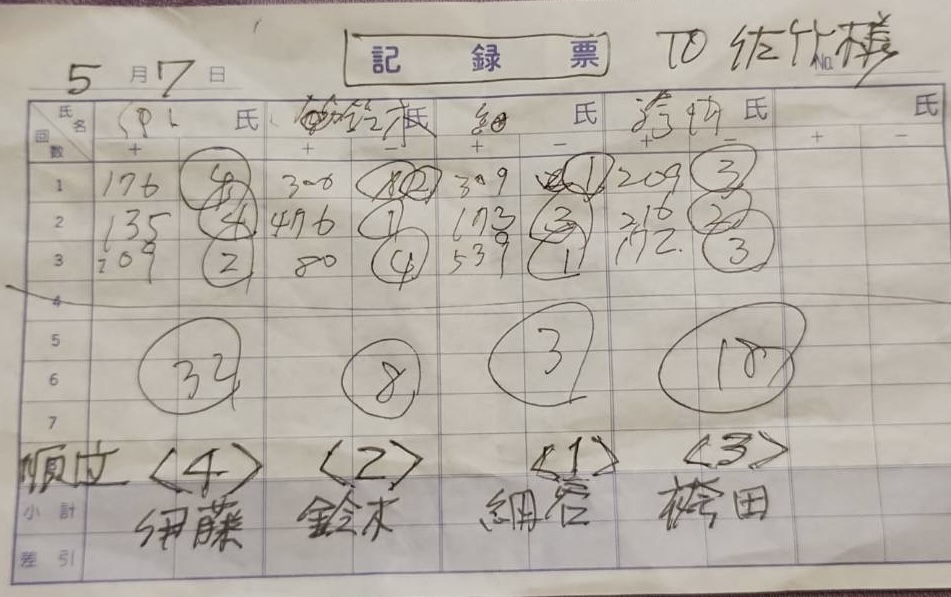 記録票 TO 佐竹様
5月7日 No.
氏名 回数 氏 鈴木氏 氏 氏 氏
+ + − + − + − + −
1 176 4 300 2 309 1 209 3
2 135 4 476 1 173 3 216 2
3 209 2 80 4 539 1 172. 3
4
5
6 32 8 3 18
7
順位 <4> <2> <1> <3>
小計 伊藤 鈴木 網谷 袴田
差引